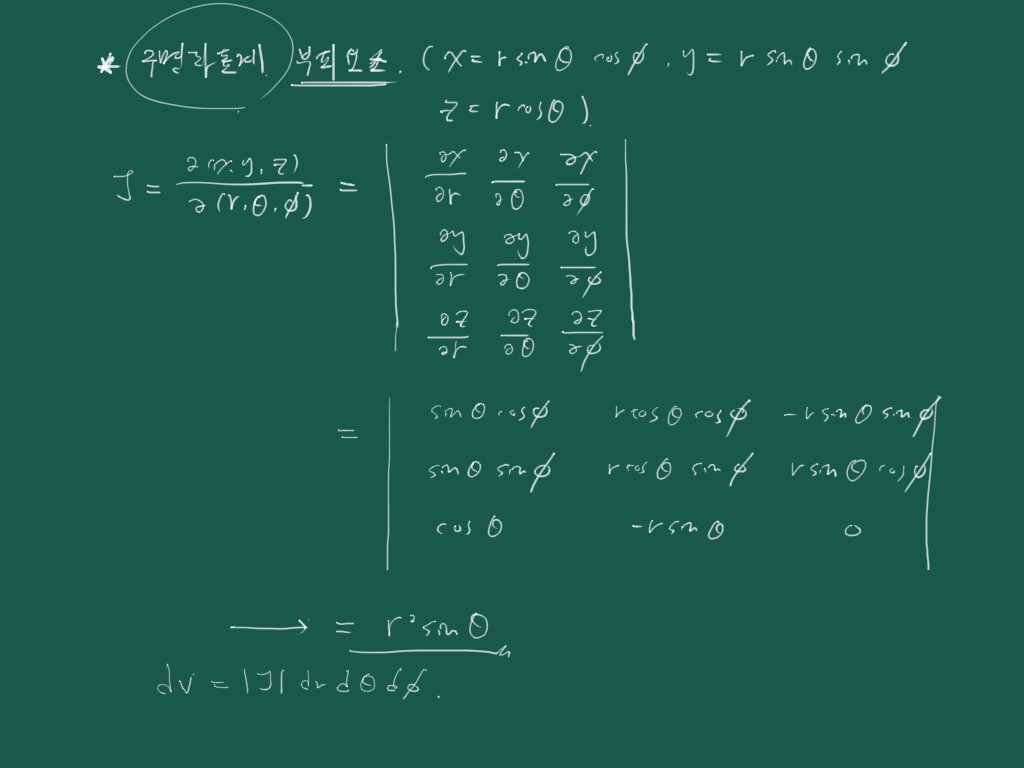 * 구면좌표계 부피요소. (x = r sinθ cosϕ, y = r sinθ sinϕ
z = r cosθ).
J = ∂(x,y,z) / ∂(r,θ,ϕ) = | ∂x/∂r ∂x/∂θ ∂x/∂ϕ |
| ∂y/∂r ∂y/∂θ ∂y/∂ϕ |
| ∂z/∂r ∂z/∂θ ∂z/∂ϕ |
= | sinθ cosϕ r cosθ cosϕ -r sinθ sinϕ |
| sinθ sinϕ r cosθ sinϕ r sinθ cosϕ |
| cosθ -r sinθ 0 |
⟶ = r² sinθ
dv = |J| dr dθ dϕ.